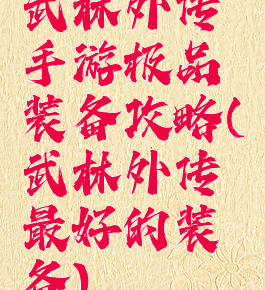 武林外传
手游极品
装备攻略(
武林外传
最好的装
备)